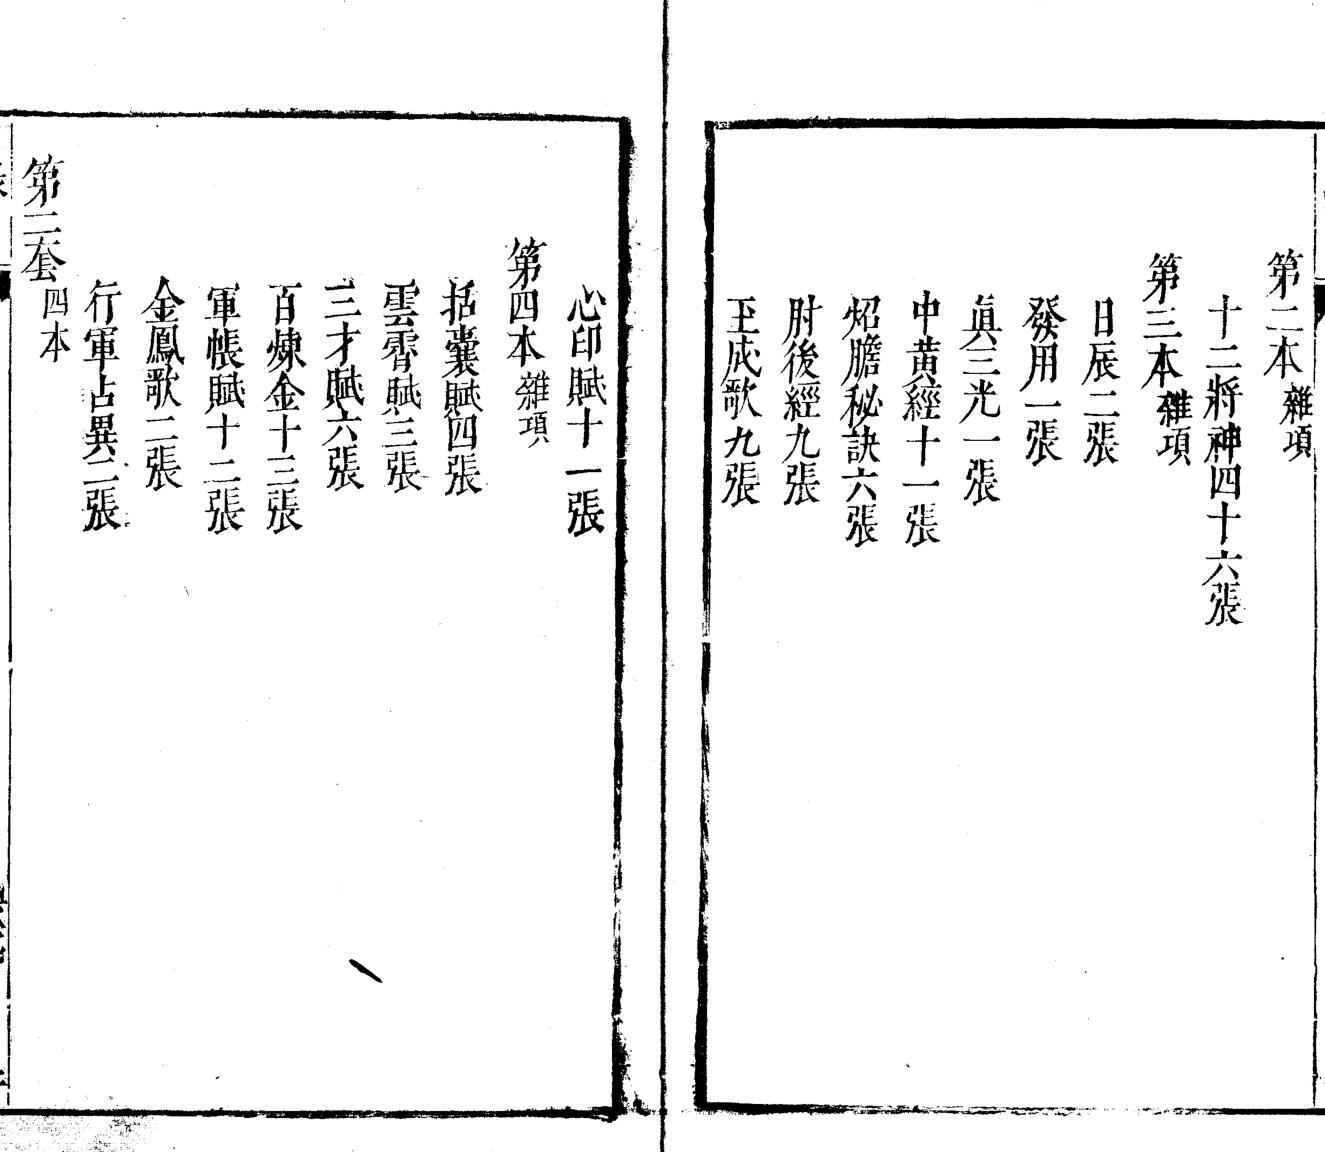 第二本雜項
十二將神四十六張
第三本雜項
日辰二張
發用一張
眞三光一張
中黃經十一張
炤膽秘訣六張
肘後經九張
玉成歌九張
心印賦十一張
第四本雜項
括囊賦四張
雲霄賦三張
三才賦六張
百煉金十三張
軍帳賦十二張
金鳳歌二張
行軍占異二張
第二套四本